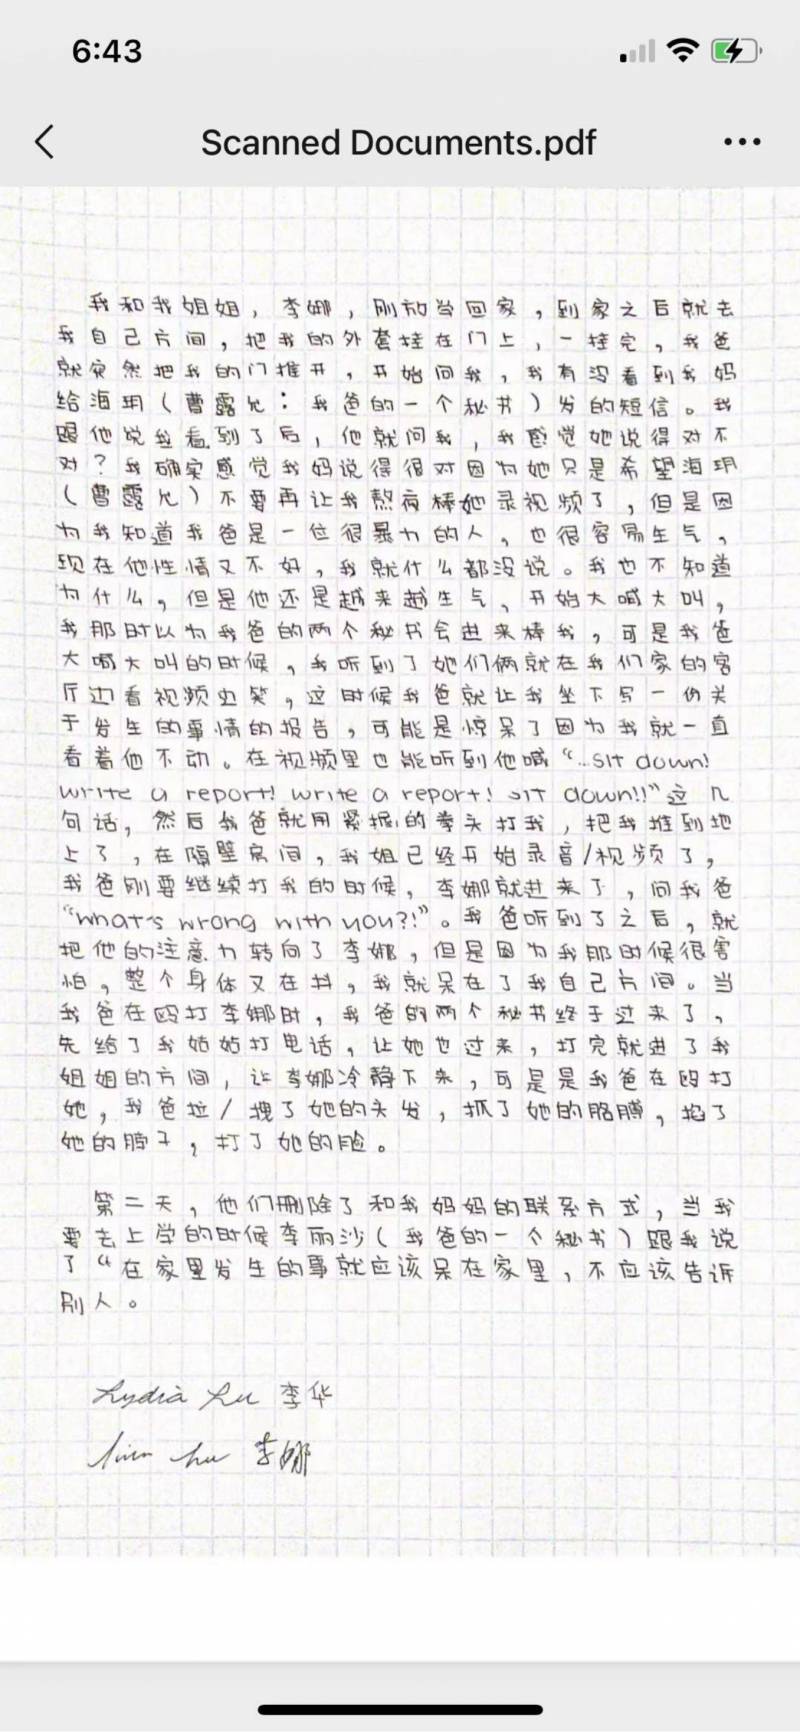 6:43
Scanned Documents.pdf
我和我姐姐，李娜，刚放学回家，到家之后就去
我自己房间，把我的外套挂在门上，一挂完，我爸
就突然把我的门推开，开始问我，我有没看到我妈
给海玥（曹露允：我爸的一个秘书）发的短信。我
跟他说我看到了后，他就问我，我感觉她说得对不
对？我确实感觉我妈说得很对因为她只是希望海玥
（曹露允）不要再让我熬夜棒她录视频了，但是因
为我知道我爸是一位很暴力的人，也很容易生气，
现在他性情又不好，我就什么都没说。我也不知道
为什么，但是他还是越来越生气、开始大喊大叫，
我那时以为我爸的两个秘书会进来棒我，可是我爸
大喊大叫的时候，我听到了她们俩就在我们家的客
厅边看视频边笑，这时候我爸就让我坐下写一份关
于发生的事情的报告，可能是惊呆了因为我就一直
看着他不动。在视频里也能听到他喊“...sit down!
write a report! write a report! sit down!!”这几
句话，然后我爸就用紧握的拳头打我，把我推到地
上了，在隔壁房间，我姐已经开始录音/视频了，
我爸刚要继续打我的时候，李娜就进来了，问我爸
“what's wrong with you?!”。我爸听到了之后，就
把他的注意力转向了李娜，但是因为我那时候很害
怕，整个身体又在抖，我就呆在了我自己房间。当
我爸在殴打李娜时，我爸的两个秘书终于过来了，
先给了我姑姑打电话，让她也过来，打完就进了我
姐姐的房间，让李娜冷静下来，可是是我爸在殴打
她，我爸拉/拽了她的头发，抓了她的胳膊，掐了
她的脖子，打了她的脸。
第二天，他们删除了和我妈妈的联系方式，当我
要去上学的时候李丽沙（我爸的一个秘书）跟我说
了“在家里发生的事就应该呆在家里，不应该告诉
别人。
Lydia Lu 李华
李娜